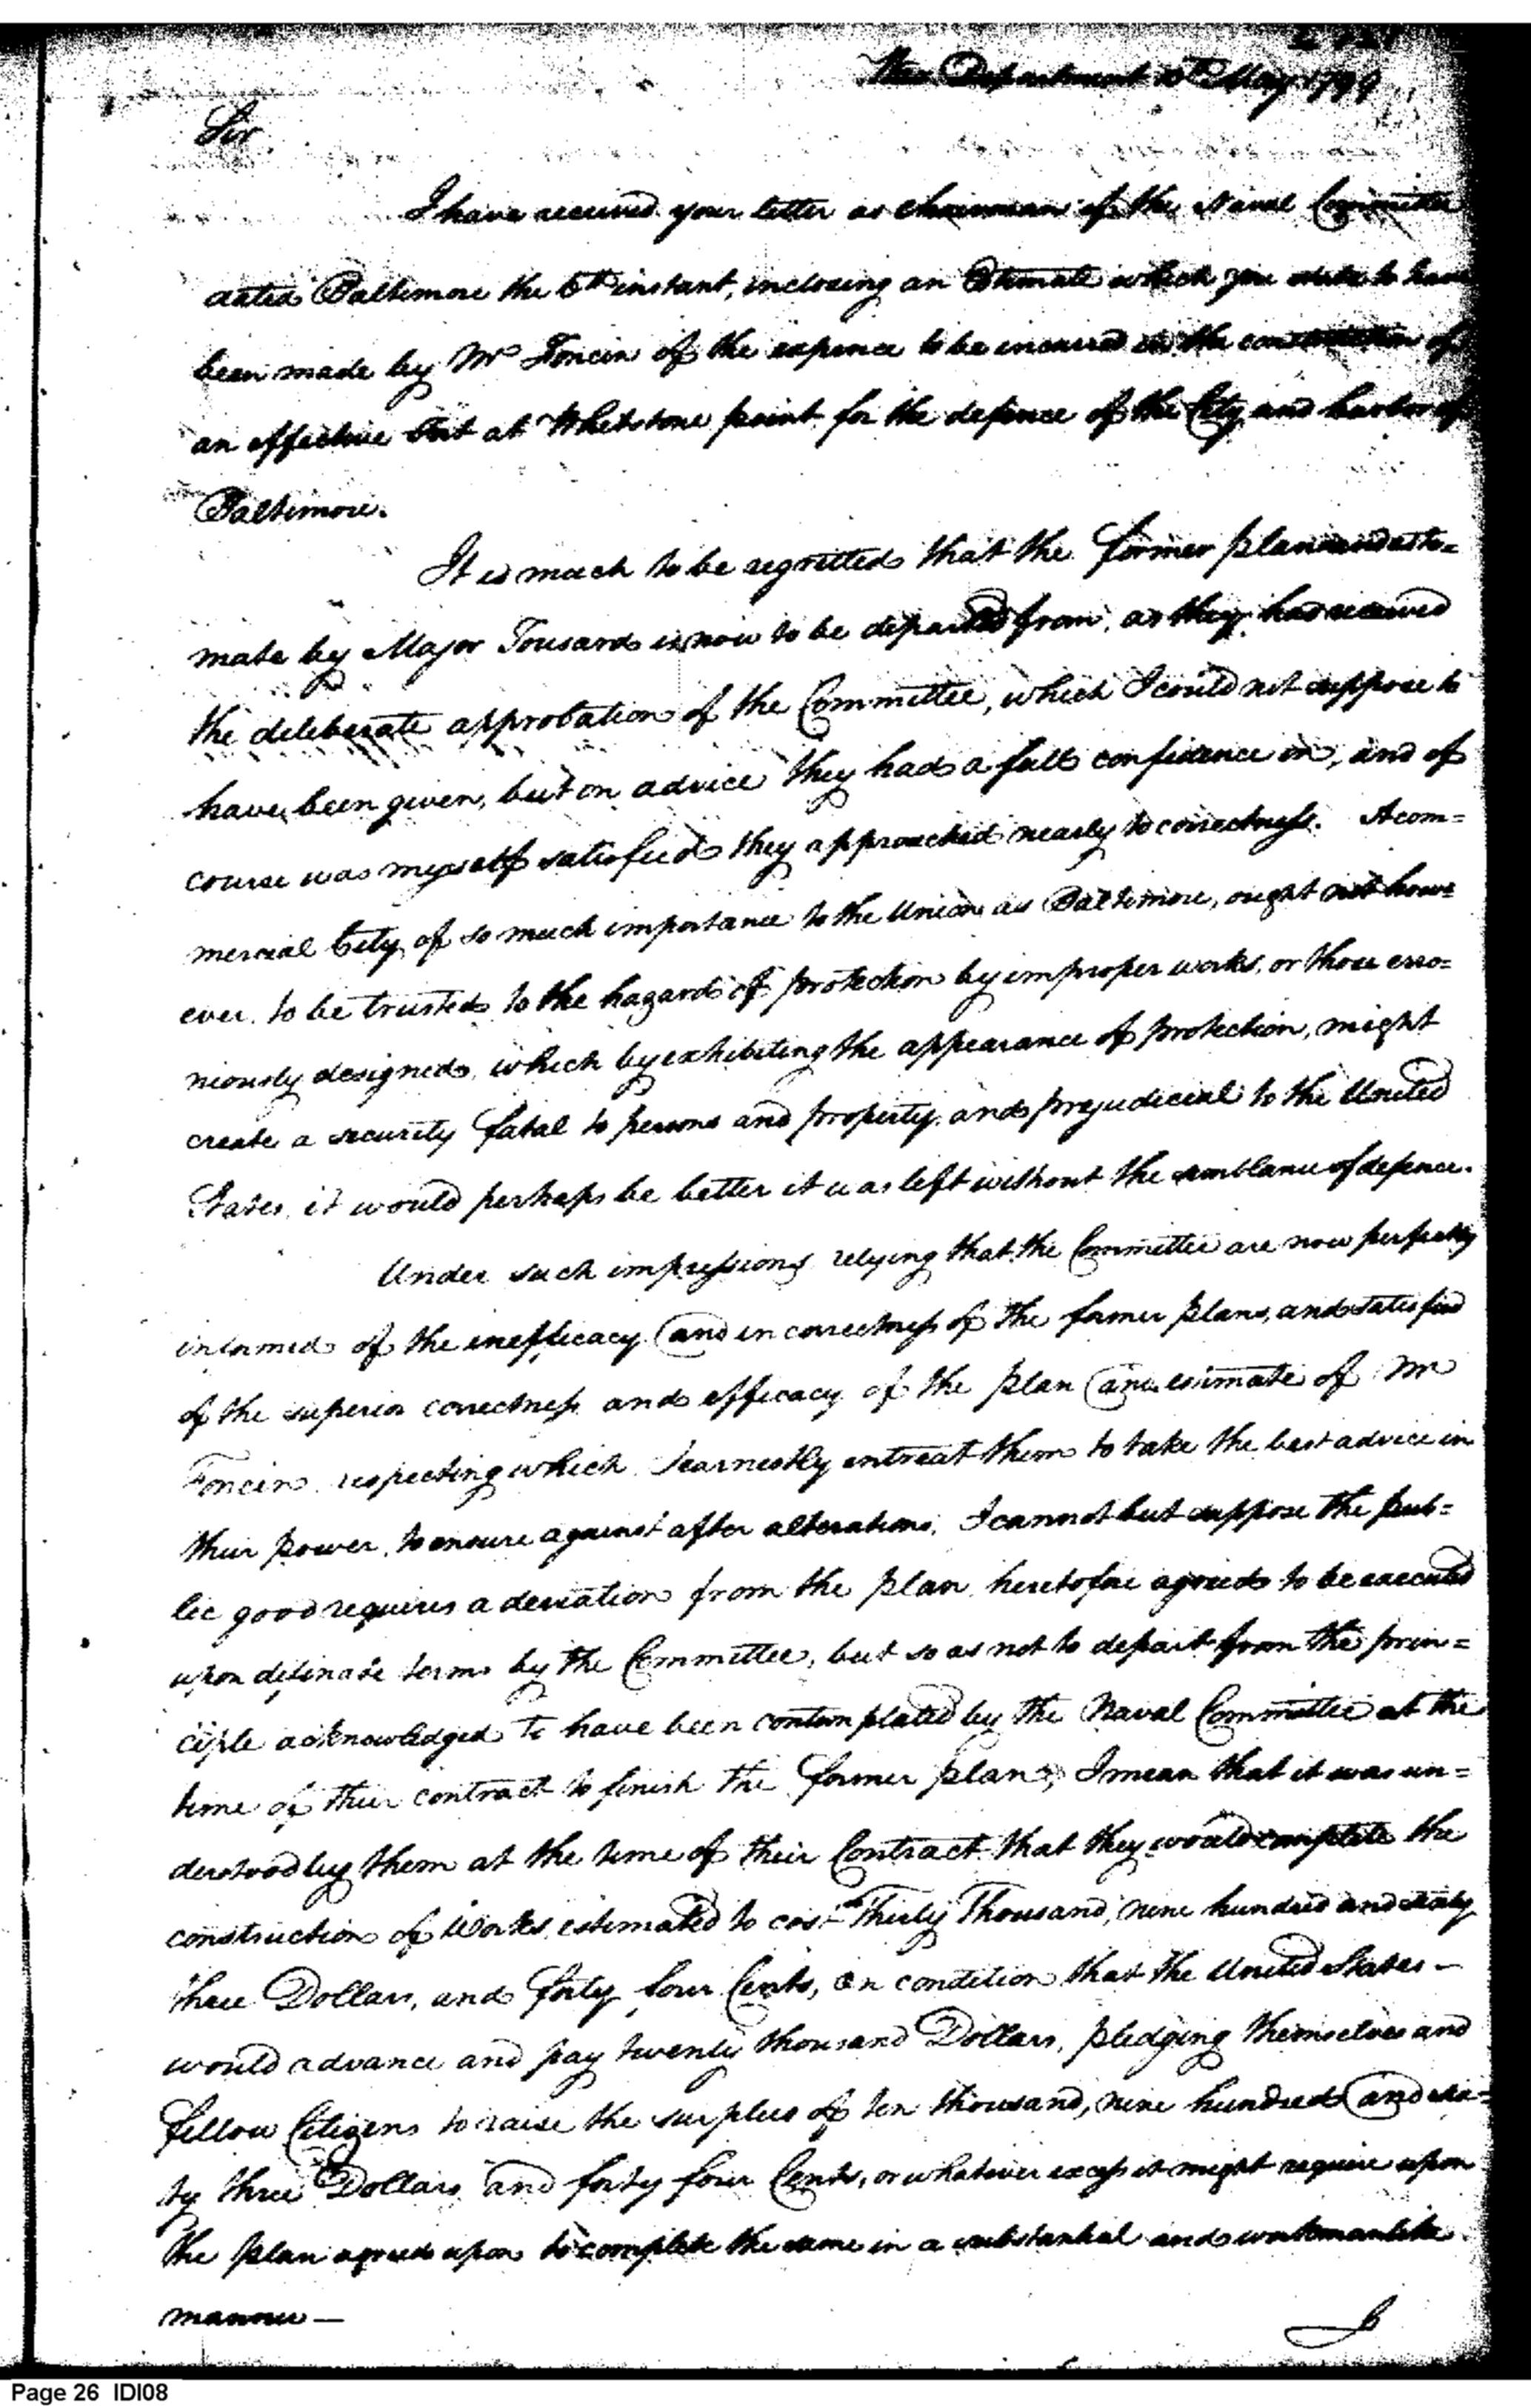 War Department 10th May 1799
Sir
I have received your letter as chairman of the Naval Committee
dated Baltimore the 6th instant, inclosing an Estimate which you state to have
been made by Mr Foncin of the expence to be incurred in the construction of
an effective Fort at Whetstone point for the defence of the City and harbor of
Baltimore.
It is much to be regretted that the former plan and esti=
mate by Major Tousard is now to be departed from, as they had received
the deliberate approbation of the Committee, which I could not suppose to
have been given, but on advice they had a full confidence in, and of
course was myself satisfied they approached nearly to correctness. A com=
mercial City of so much importance to the Union as Baltimore, ought not how=
ever to be trusted to the hazard of protection by improper works, or those erro=
niously designed, which by exhibiting the appearance of protection, might
create a security fatal to persons and property, and prejudicial to the United
States, it would perhaps be better it was left without the semblance of defence.
Under such impressions relying that the Committee are now perfectly
informed of the inefficacy and incorrectness of the former plans, and satisfied
of the superior correctness and efficacy of the plan and estimate of Mr
Foncin respecting which I earnestly entreat them to take the best advice in
their power, to ensure against after alterations, I cannot but suppose the pub=
lic good requires a deviation from the plan heretofore agreed to be executed
upon definate terms by the Committee, but so as not to depart from the prin=
ciple acknowledged to have been contemplated by the Naval Committee at the
time of their contract to finish the former plan, I mean that it was un=
derstood by them at the time of their Contract that they would complete the
construction of Works estimated to cost Thirty Thousand, nine hundred and sixty
three Dollars, and forty four Cents, on condition that the United States –
would advance and pay twenty thousand Dollars, pledging themselves and
fellow Citizens to raise the surplus of ten thousand, nine hundred and six=
ty three Dollars and forty four Cents, or whatever excess it might require upon
the plan agreed upon to complete the same in a substantial and workmanlike
manner —
Page 26 IDI08